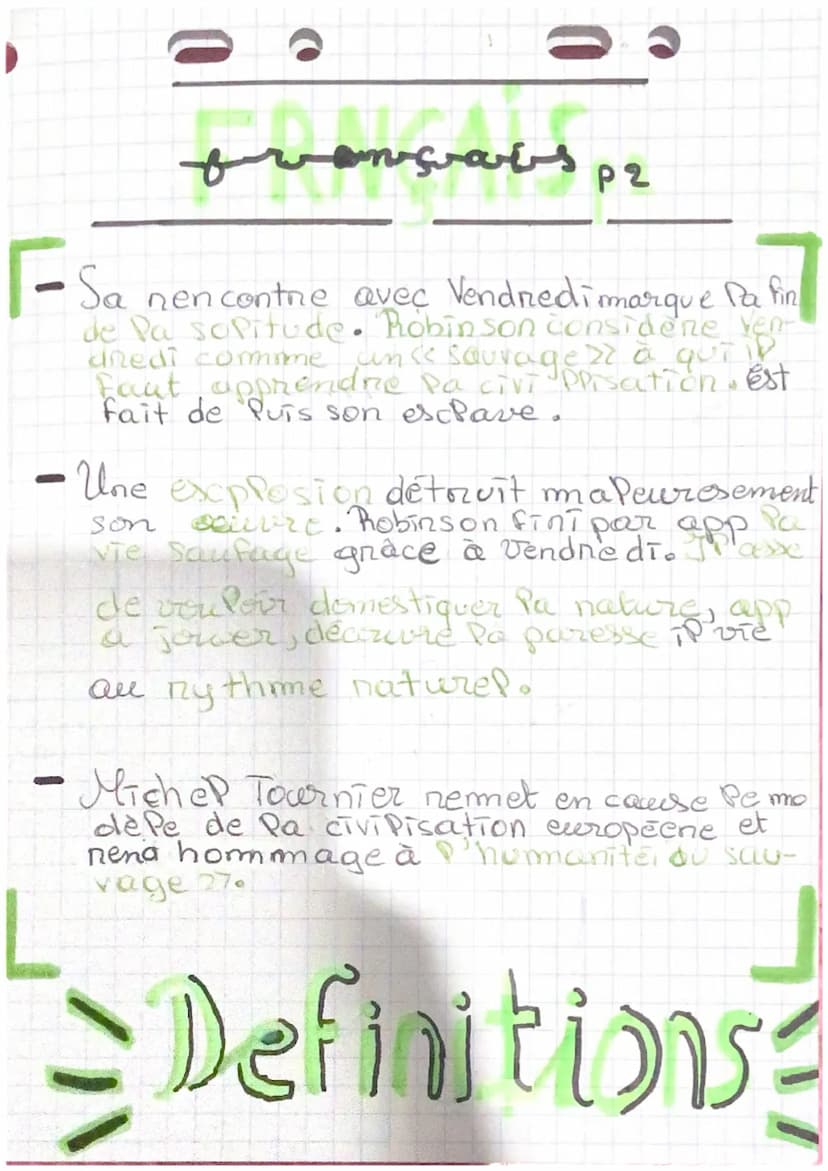 FRNÇAIS
français p2
- Sa rencontre avec Vendredi marque la fin
de la solitude. Robinson considère Ven-
dredi comme un << sauvage >> à qui il
faut apprendre la civillisation. Est
fait de luis son esclave.
- Une explosion détruit maleuresement
son œuvre. Robinson fini par app la
vie saufage grâce à Vendredi. Il cesse
de vouloir domestiquer la nature, app
a jouer, décruvre la paresse il vie
au rythme naturel.
- Michel Tournier remet en cause le mo
dèle de la civilisation européene et
rend hommmage à l'humanité, du sau-
vage >>.
Definitions